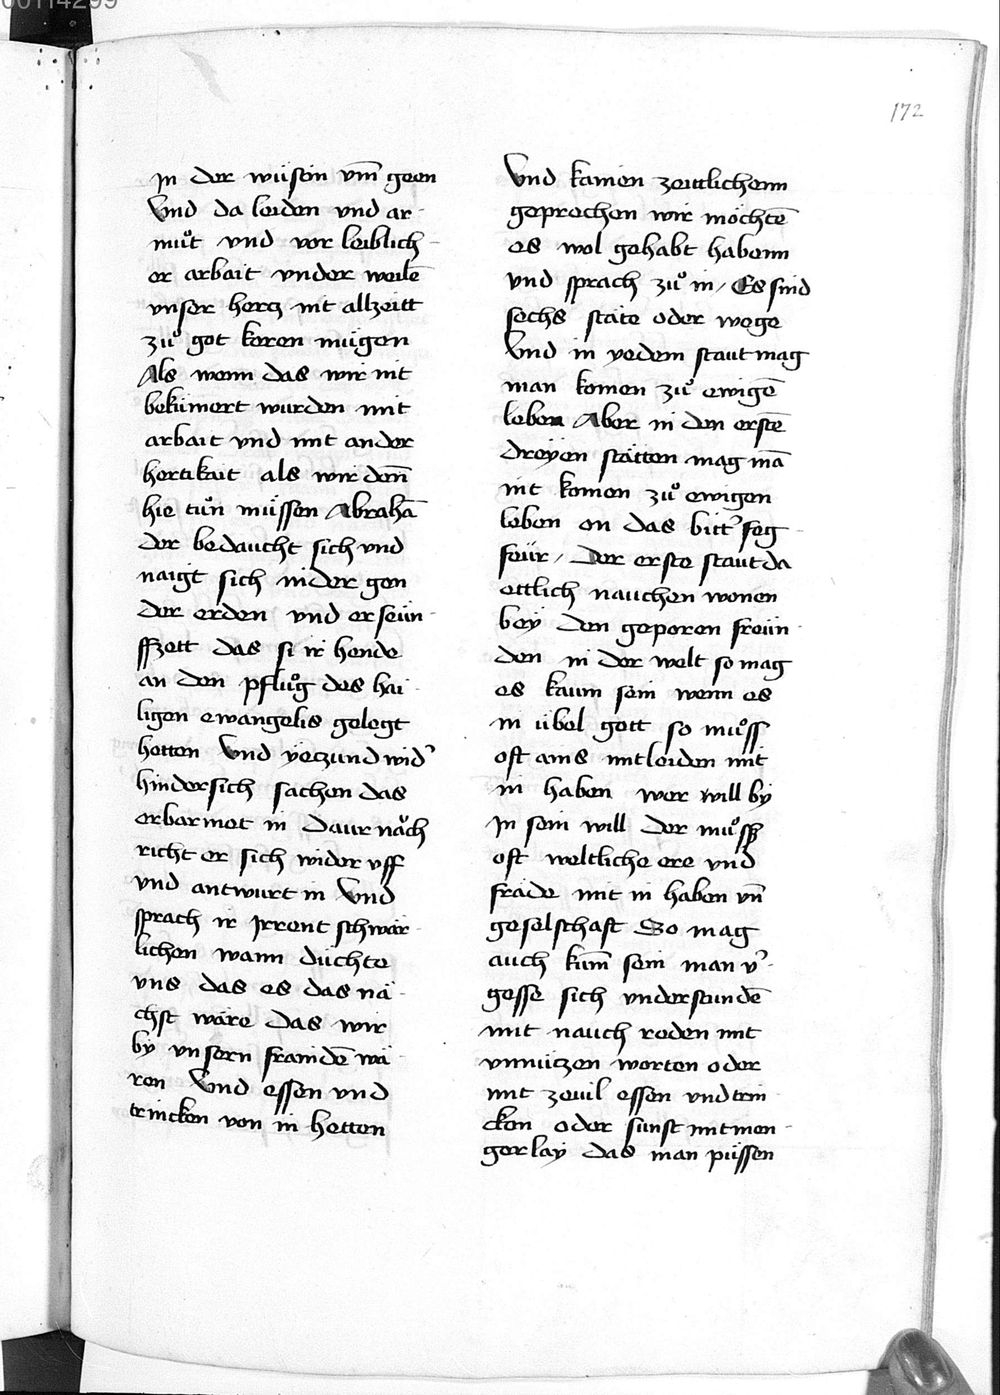 00114299
172
in der wüsein vm̄ geen
Vnd da leiden vnd ar-
muͦt vnd vor leiblich-
er arbait vnder weilē
vnser hercz nit allzeitt
zuͦ got keren mügen
Als wenn das wir nit
bekümert wurden mit
arbait vnd mit ander
hertikait als wir den̄
hie tuͦn müssen Abrahā
der bedaucht sich vnd
naigt sich nider gen
der erden vnd erseün-
ffzett das si ir hende
an den pfluͦg des hai-
ligen ewangelis gelegt
hetten Vnd yeczund wid̉
hindersich sachen das
erbarmet in Daur nauͦch
richt er sich wider vff
vnd antwurt in Vnd
sprach ir Jrrent schwär-
lichen wann düchte
vns das es das nä-
chst wäre das wir
by vnsern frainden̄ wä-
ren Vnd essen vnd
trincken von in hetten
Vnd kamen zeittlichenn
gesprochen wir möchtē
es wol gehabt habenn
vnd sprach zuͦ in / Es sind
sechs stäte oder wege
Vnd in yedem staut mag
man komen zuͦ ewigē
leben Aber in den erstē
dreyen stätten mag mā
nit komen zuͦ ewigen
leben on das bitt̉ feg-
feür / Der erste staut da
ettlich nauchen wonen
bey den geporen freün-
den in der welt so mag
es kaum sein wenn es
in übel gett so muͦss
oft ains mitleiden mit
in haben wer will by
in sein will der muͦsz
oft weltliche ere vnd
fräde mit in haben vn̄
geselschaft So mag
auch kum̄ sein man v̉-
gesse sich vnderstundē
mit nauch reden mit
vnnüczen worten oder
mit zevil essen vnd trin-
cken oder sunst mit men-
gerlay das man püssen